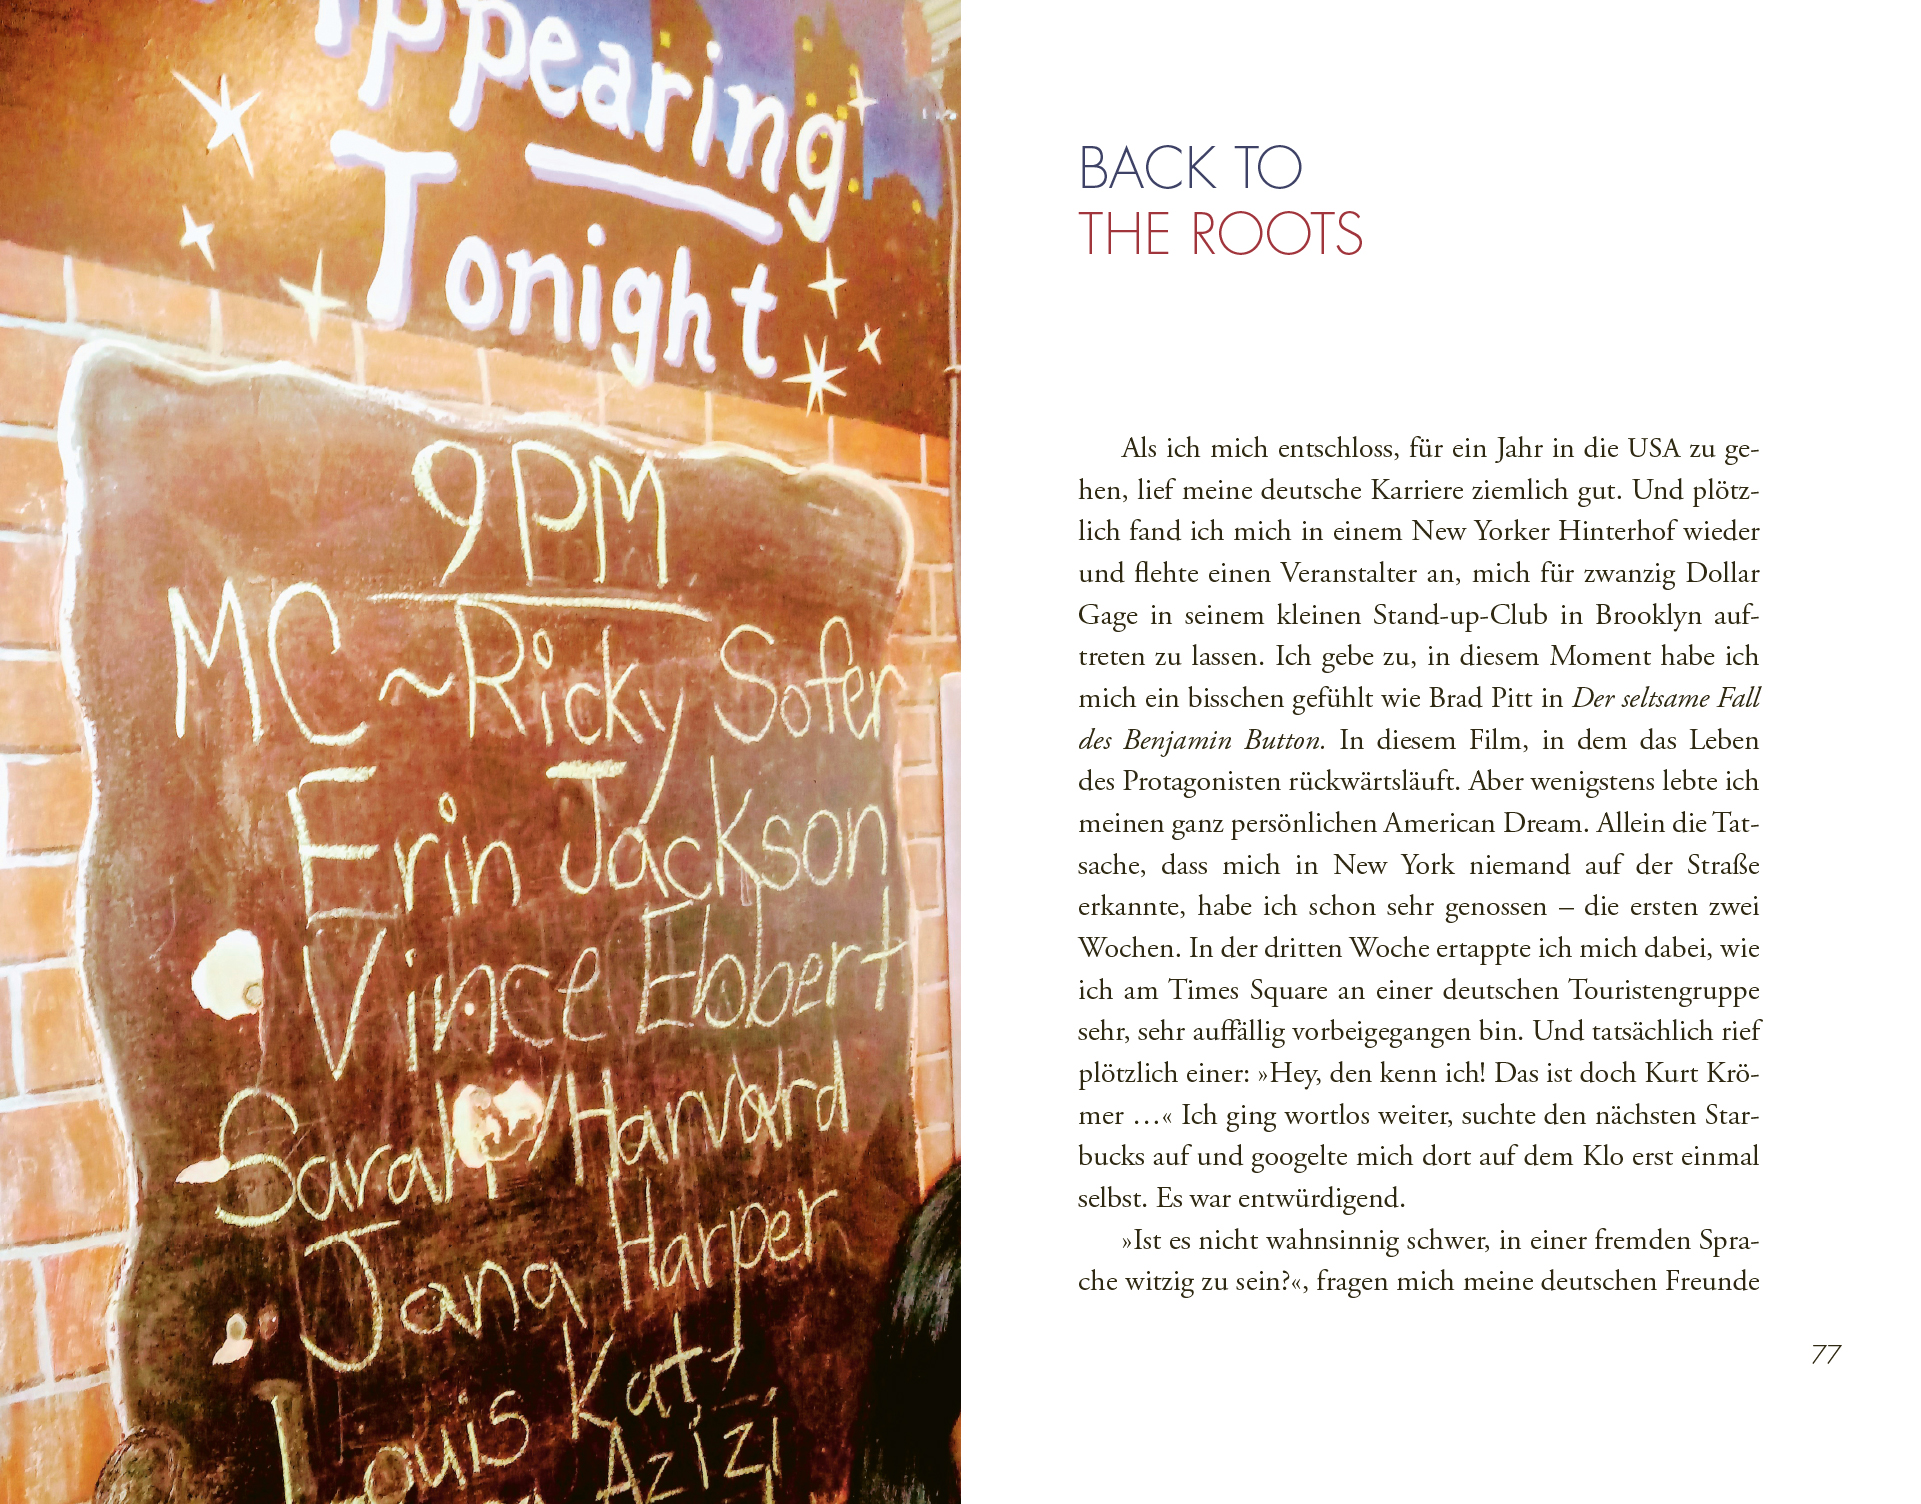 Appearing
Tonight
9PM
MC ~ Ricky Sofer
Erin Jackson
Vince Ebbert
Sarah Harvard
Jana Harper
Louis Katz
Azizi
BACK TO
THE ROOTS
Als ich mich entschloss, für ein Jahr in die USA zu ge-
hen, lief meine deutsche Karriere ziemlich gut. Und plötz-
lich fand ich mich in einem New Yorker Hinterhof wieder
und flehte einen Veranstalter an, mich für zwanzig Dollar
Gage in seinem kleinen Stand-up-Club in Brooklyn auf-
treten zu lassen. Ich gebe zu, in diesem Moment habe ich
mich ein bisschen gefühlt wie Brad Pitt in Der seltsame Fall
des Benjamin Button. In diesem Film, in dem das Leben
des Protagonisten rückwärtsläuft. Aber wenigstens lebte ich
meinen ganz persönlichen American Dream. Allein die Tat-
sache, dass mich in New York niemand auf der Straße
erkannte, habe ich schon sehr genossen – die ersten zwei
Wochen. In der dritten Woche ertappte ich mich dabei, wie
ich am Times Square an einer deutschen Touristengruppe
sehr, sehr auffällig vorbeigegangen bin. Und tatsächlich rief
plötzlich einer: »Hey, den kenn ich! Das ist doch Kurt Krö-
mer …« Ich ging wortlos weiter, suchte den nächsten Star-
bucks auf und googelte mich dort auf dem Klo erst einmal
selbst. Es war entwürdigend.
»Ist es nicht wahnsinnig schwer, in einer fremden Spra-
che witzig zu sein?«, fragen mich meine deutschen Freunde
77